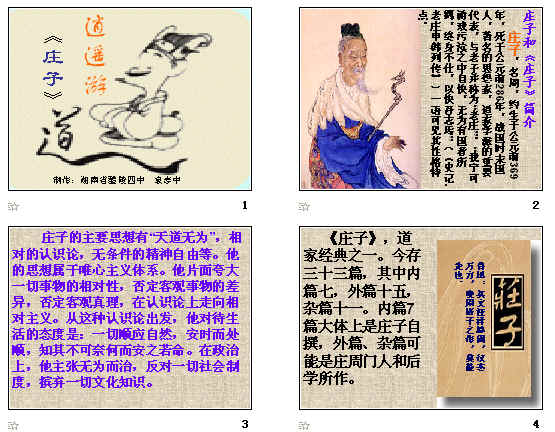 逍遥游
《庄子》
道
制作：湖南省醴陵四中
1
庄子和《庄子》简介
庄子，名周，约生于公元前369
年，死于公元前286年，战国时宋国
人，著名的思想家，道家学派的重要
代表，与老子并称为“老庄”。“我宁可
游戏污渎之中自快，无为有国者所
羁，终身不仕，以快吾志焉。”（《史记·
老庄申韩列传》）一语可见其性格特
点。
2
庄子的主要思想有“天道无为”，相
对的认识论，无条件的精神自由等。他
的思想属于唯心主义体系。他片面夸大
一切事物的相对性，否定客观事物的差
异，否定客观真理，在认识论上走向相
对主义。从这种认识论出发，他对待生
活的态度是：一切顺应自然，安时而处
顺，知其不可奈何而安之若命。在政治
上，他主张无为而治，反对一切社会制
度，摈弃一切文化知识。
3
《庄子》，道
家经典之一。今存
三十三篇，其中内
篇七，外篇十五，
杂篇十一。内篇7
篇大体上是庄子自
撰，外篇、杂篇可
能是庄周门人和后
学所作。
莊子
鲁迅：其文汪洋辟阖，仪态
万方，晚周诸子之作，莫能
先也。
4